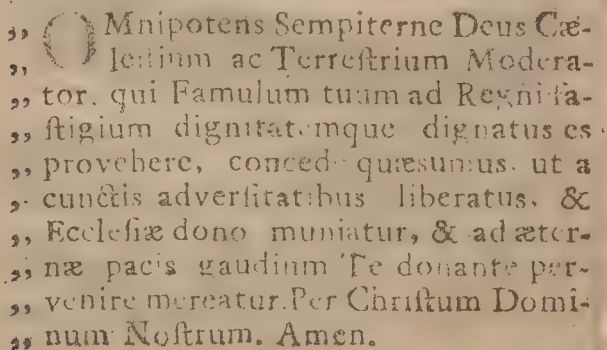 „ OMnipotens Sempiterne Deus Cæ-
„ leſtium ac Terreſtrium Modera-
„ tor. qui Famulum tuum ad Regni fa-
„ ſtigium dignitatemque dignatus es
„ provehere, concede quæsumus. ut a
„ cunctis adverſitatibus liberatus, &
„ Eccleſiæ dono muniatur, & ad æter-
„ næ pacis gaudium Te donante per-
„ venire mereatur. Per Chriſtum Domi-
„ num Noſtrum. Amen.